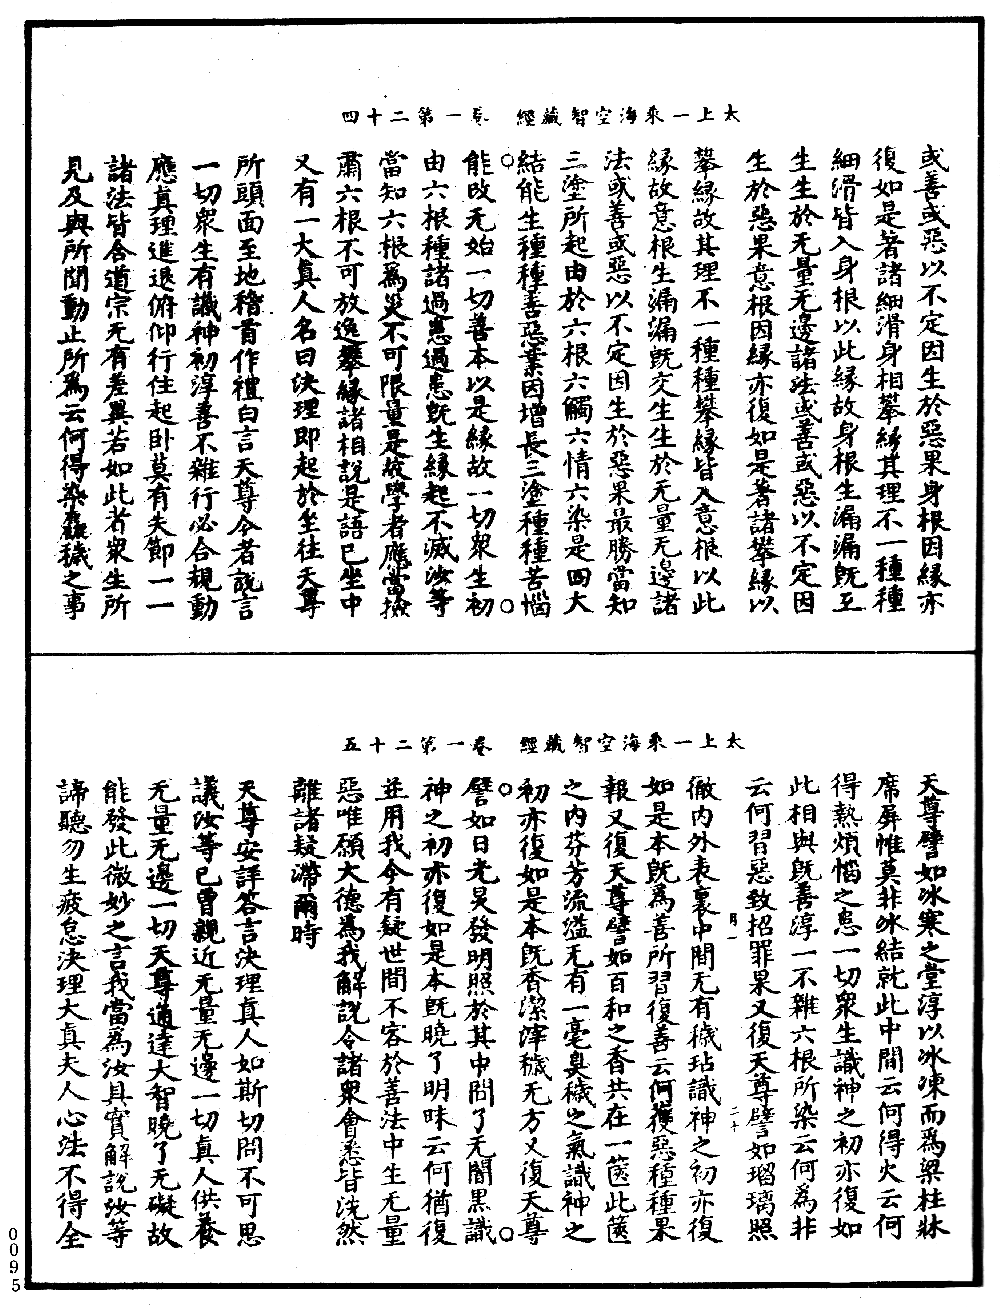 太上一乘海空智藏經　卷一第二十四
或善或惡以不定因生於惡果身根因緣亦
復如是著諸細滑身相攀緣其理不一種種
細滑皆入身根以此緣故身根生漏漏旣至
生生於无量无邊諸法或善或惡以不定因
生於惡果意根因緣亦復如是著諸攀緣以
攀緣故其理不一種種攀緣皆入意根以此
緣故意根生漏漏旣交生生於无量无邊諸
法或善或惡以不定因生於惡果最勝當知
三塗所起由於六根六觸六情六染是四大
結能生種種善惡業因增長三塗種種苦惱
能改无始一切善本以是緣故一切衆生初
由六根種諸過患過患旣生緣起不滅汝等
當知六根爲災不可限量是故學者應當撿
肅六根不可放逸攀緣諸相說是語已坐中
又有一大真人名曰決理即起於坐往天尊
所頭面至地稽首作禮白言天尊今者說言
一切衆生有識神初淳善不雜行必合規動
應真理進退俯仰行住起卧莫有失節一一
諸法皆含道宗无有差異若如此者衆生所
見及與所聞動止所爲云何得染麤穢之事
太上一乘海空智藏經　卷一第二十五
天尊譬如冰寒之堂淳以冰凍而爲梁柱牀
席屏帷莫非冰結就此中間云何得火云何
得熱煩惱之患一切衆生識神之初亦復如
此相與旣善淳一不雜六根所染云何爲非
云何習惡致招罪果又復天尊譬如瑠璃照
徹內外表裏中間无有穢玷識神之初亦復
如是本旣爲善所習復善云何獲惡種種果
報又復天尊譬如百和之香共在一篋此篋
之內芬芳流溢无有一毫臭穢之氣識神之
初亦復如是本旣香潔滓穢无方又復天尊
譬如日光炅發明照於其中間了无闇黑識
神之初亦復如是本旣曉了明昧云何猶復
並用我今有疑世間不容於善法中生无量
惡唯願大德爲我解說令諸衆會悉皆洗然
離諸疑滯爾時
天尊安詳答言決理真人如斯切問不可思
議汝等已曾親近无量无邊一切真人供養
无量无邊一切天尊通達大智曉了无礙故
能發此微妙之言我當爲汝具實解說汝等
諦聽勿生疲怠決理大真夫人心法不得全
0095